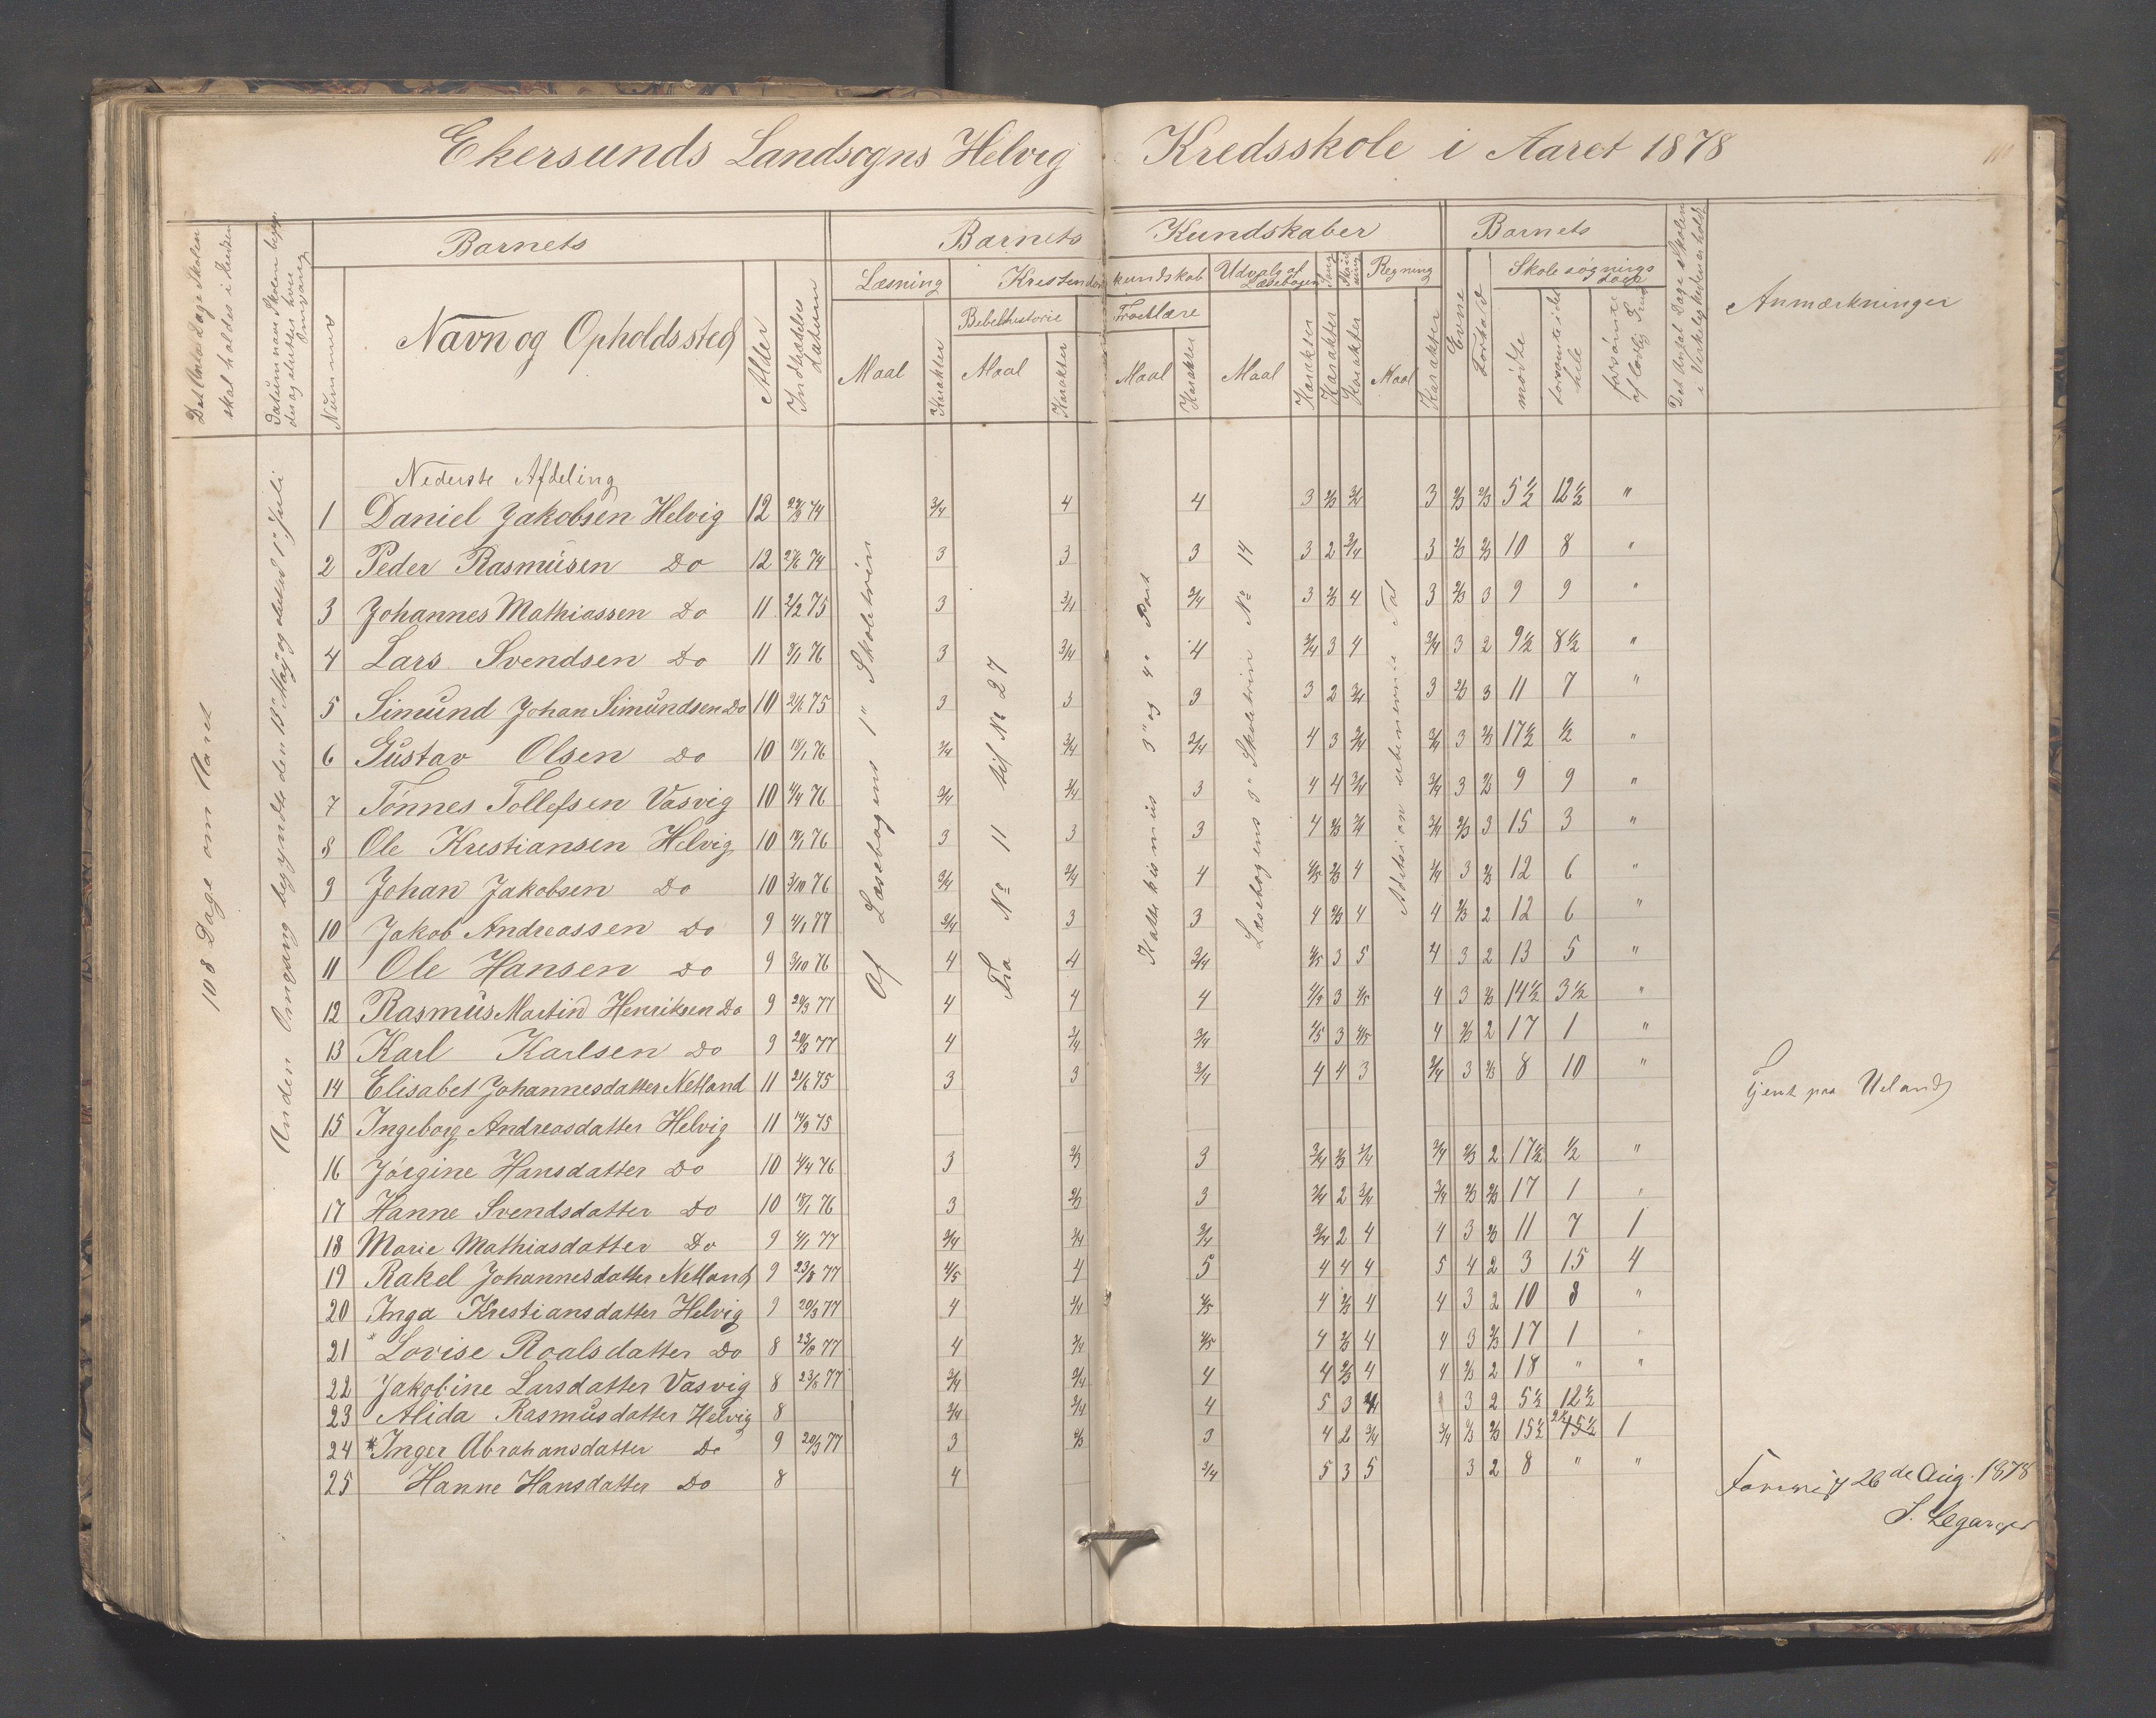 Ekersunds Landsogns Helvig Kredsskole i Aaret 1878
Det Antal Dage Skolen skal holdes i Kredsen
Datum naar Skolen begynder og slutter hver Omgang
Nummer
Barnets
Navn og Opholdssted
Alder
Indtrædelses Datum
Barnets Kundskaber
Læsning
Maal
Karakter
Kristendomskundskab
Bibelhistorie
Maal
Karakter
Troeslære
Maal
Karakter
Udvalg af Læsebogen
Maal
Karakter
Sang
Karakter
Skrivning
Karakter
Regning
Maal
Karakter
Barnets
Evne
Forhold
Skolesøgningsdage
mødte
forsømte i det hele
forsømte af lovlig Grund
Det Antal Dage Skolen i Virkeligheden er holdt
Anmærkninger
108 Dage om Aaret
Anden Omgang begyndte den 13de Maj og sluttes 1ste Juli
Af Læsebogens 1ste Skoletrin
Fra No 11 til No 27
Katekismus 3die og 4de Part
Læsebogens 3die Skoletrin No 14
Addition ubenævnte Tal
Nederste Afdeling
1 Daniel Jakobsen Helvig 12 74 3/4 4 4 3 2/3 3/4 3 2/3 2/3 5 1/2 12 1/2 "
2 Peder Rasmusen Do 12 74 3 3 3 3 2 3/4 3 2/3 2/3 10 8 "
3 Johannes Mathiassen Do 11 75 3 3/4 3/4 3 2/3 4 3 2/3 3 9 9 "
4 Lars Svendsen Do 11 76 3 3/4 4 3/4 3 4 3/4 3 2 9 1/2 8 1/2 "
5 Simund Johan Simundsen Do 10 75 3 3 3 3 2 3/4 3 2/3 3 11 7 "
6 Gustav Olsen Do 10 76 3/4 3/4 3/4 4 3 3/4 3/4 3 2/3 17 1/2 1/2 "
7 Tönnes Tollefsen Vasvig 10 76 3/4 3/4 3 4 4 3/4 3/4 3 2/3 9 9 "
8 Ole Kristiansen Helvig 10 76 3 3 3 4 2/3 3/4 3/4 2/3 3 15 3 "
9 Johan Jakobsen Do 10 3/10 76 3/4 3/4 4 4/5 2/3 4 3/4 3 2/3 12 6 "
10 Jakob Andreassen Do 9 4/1 77 3/4 3 3 4 2/3 4 4 2/3 2 12 6 "
11 Ole Hansen Do 9 3/10 76 4 4 3/4 4/5 3 5 4 3 2 13 5 "
12 Rasmus Martin Henriksen Do 9 20/3 77 4 4 4 4/5 3 4/5 4 3 2/3 14 1/2 3 1/2 "
13 Karl Karlsen Do 9 20/3 77 4 3/4 3/4 4/5 3 4/5 4 2/3 2 17 1 "
14 Elisabet Johannesdatter Netland 11 75 3 3 3/4 4 4 3 3/4 3 2/3 8 10 "
15 Ingeborg Andreasdatter Helvig 11 75 tjent paa Ueland
16 Jörgine Hansdatter Do 10 4/4 76 3 2/3 3 3/4 2/3 3/4 3/4 2/3 2 17 1/2 1/2 "
17 Hanne Svendsdatter Do 10 76 3 2/3 3 3/4 2 3/4 3/4 2/3 2/3 17 1 "
18 Marie Mathiasdatter Do 9 4/1 77 3/4 3/4 3/4 3/4 2 4 4 3 2/3 11 7 1
19 Rakel Johannesdatter Netland 9 23/8 77 4/5 4 5 4 4 4 5 4 2 3 15 4
20 Inga Kristiansdatter Helvig 9 20/3 77 4 3/4 4/5 4 2/3 4 4 3 2 10 8 "
21 * Lovise Roalsdatter Do 8 23/8 77 4 3/4 4/5 4 2/3 4 4 3 2/3 17 1 "
22 Jakobine Larsdatter Vasvig 8 23/8 77 3/4 3/4 4 4 2/3 4 4 2/3 2 18 " "
23 Alida Rasmusdatter Helvig 8 3/4 3/4 4 5 3 3 2 5 1/2 12 1/2
24 * Inger Abrahansdatter Do 9 20/3 77 3 2/3 3 4 2 3/4 3/4 2/3 15 1/2 2 1/2 1
25 Hanne Hansdatter Do 8 4 3/4 5 3 5 3 2 8 " "
26de Aug. 1878